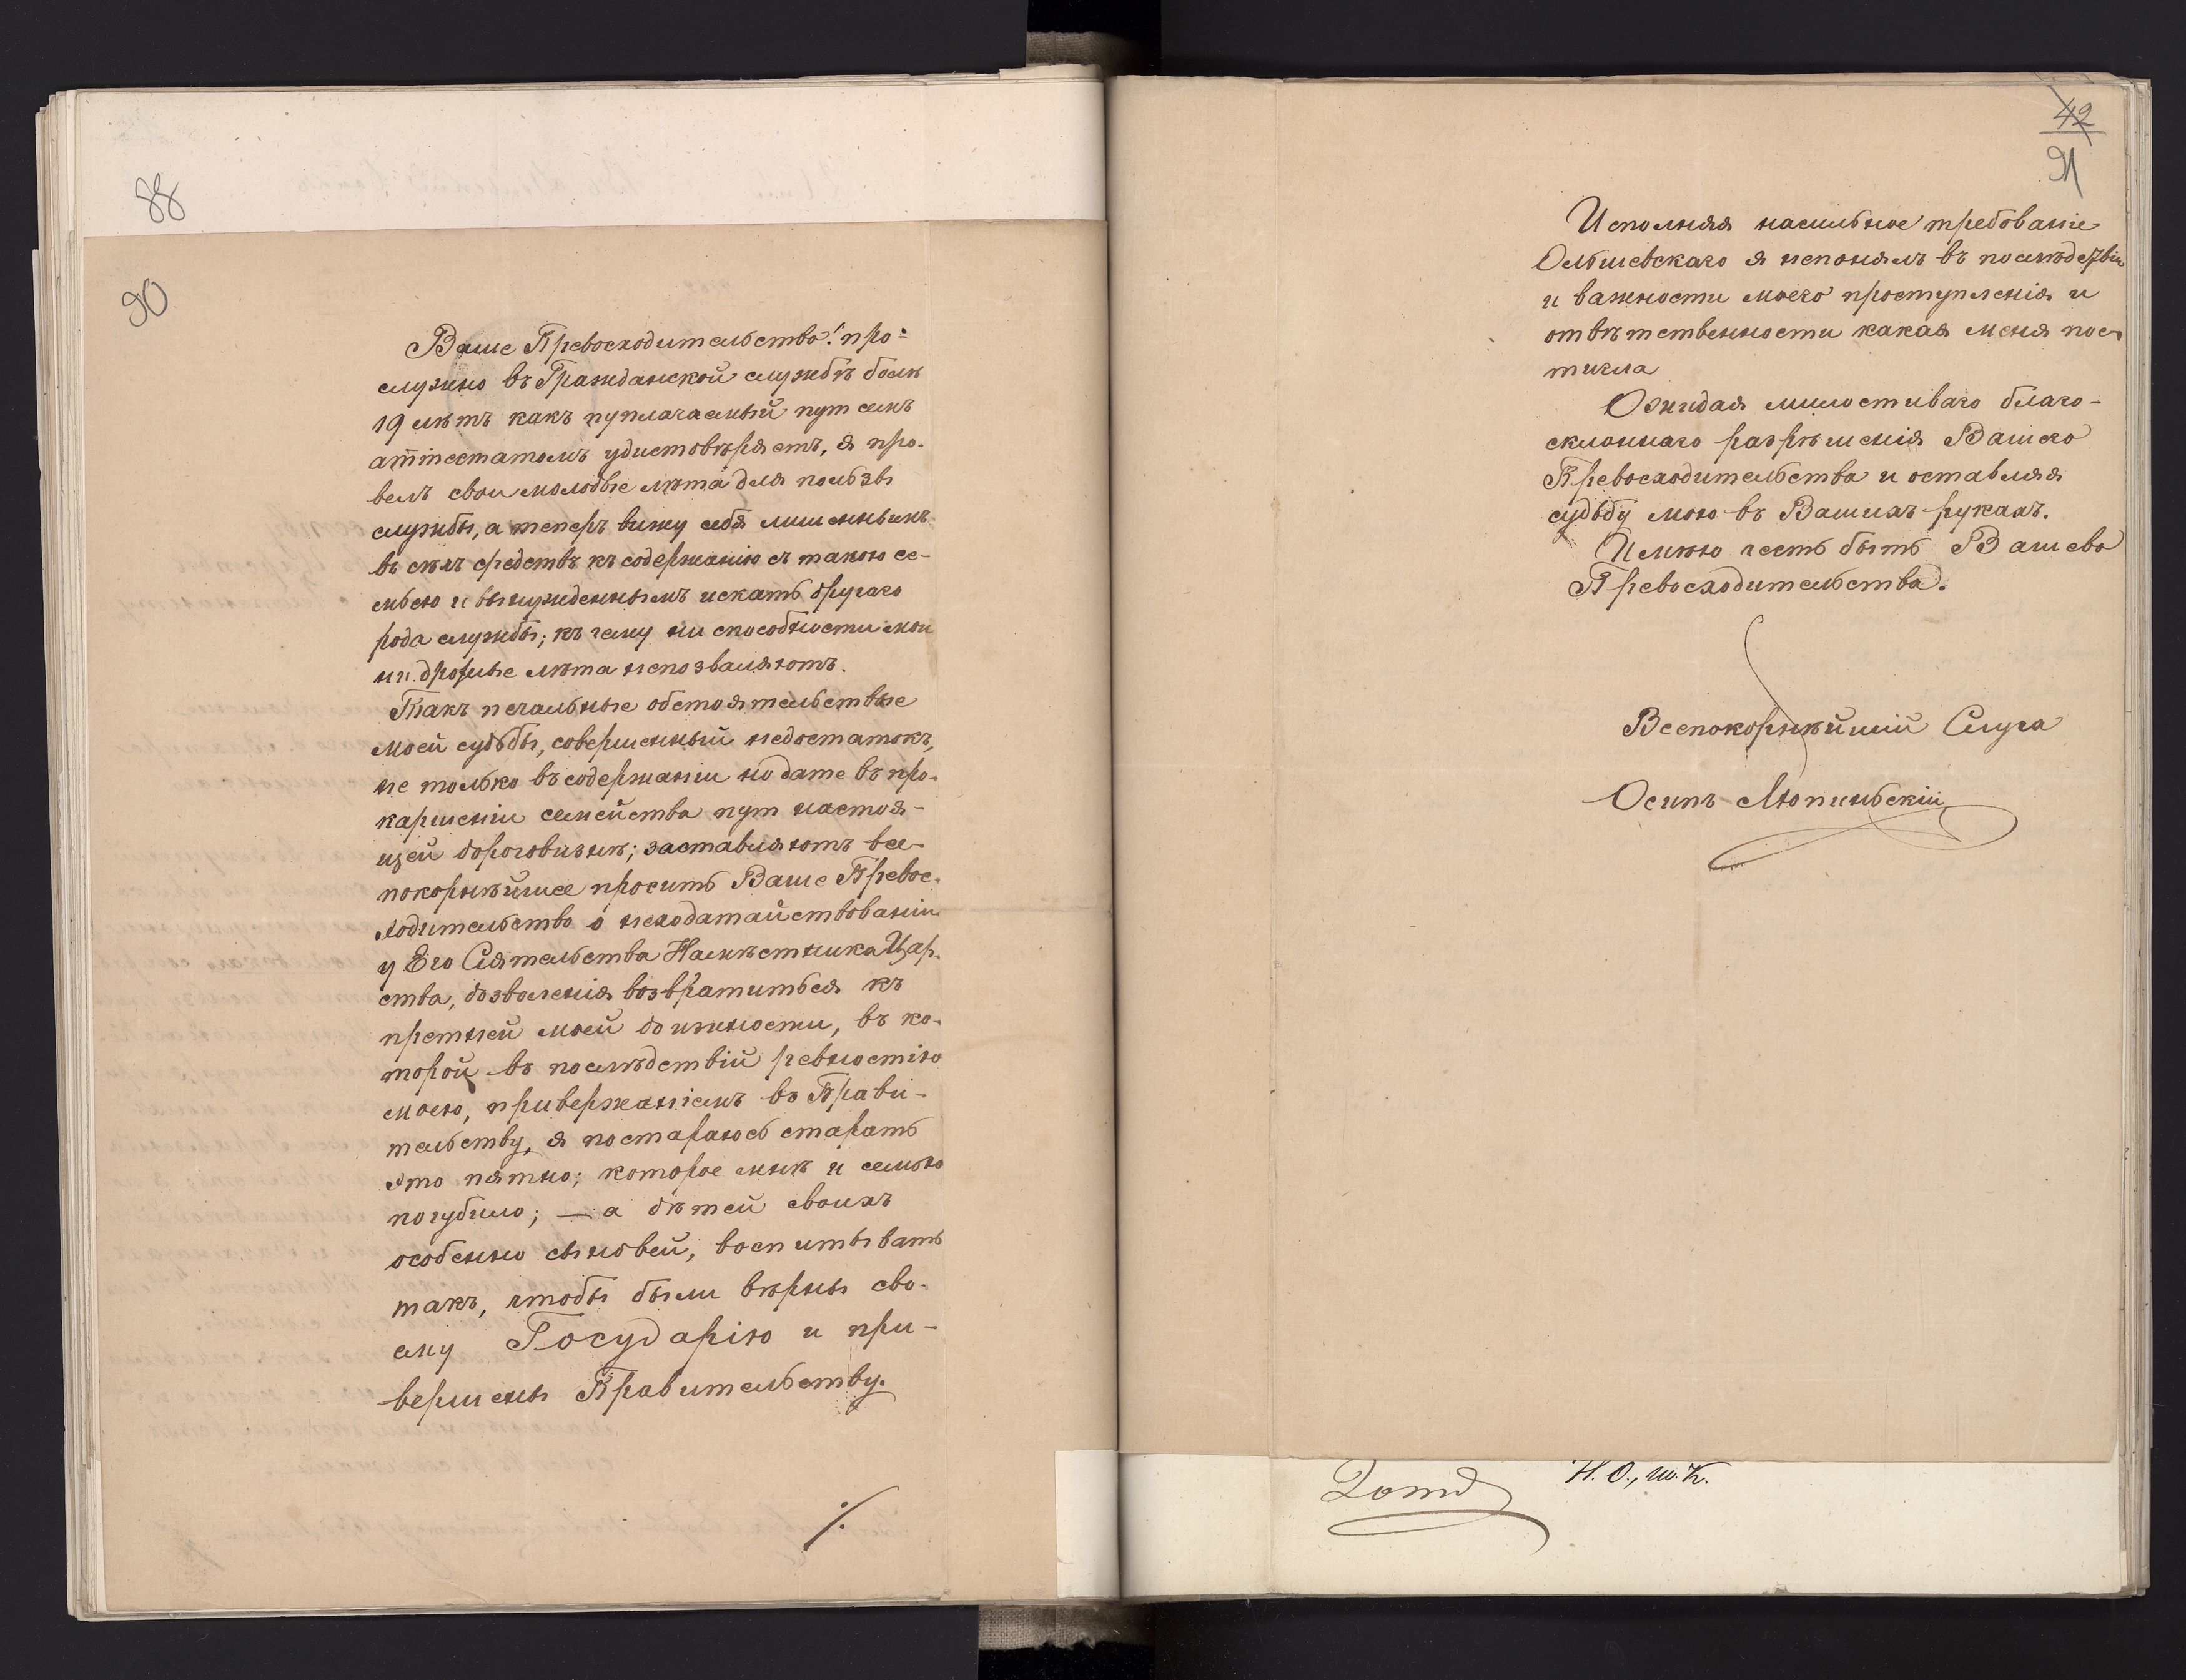 88
90
Ваше Превосходительство! про-
служио въ Гражданской службѣ болѣ
19 лѣтъ какъ пуплагаемый пут семъ
аттестатомъ удистовѣряетъ, я про-
велъ свои молодые лѣта для ползы
службы, а теперъ вижу себя лишеннымъ
въ сѣхъ средствъ къ содержанію съ такою се-
мьею и вынужденнымъ искать другаго
рода службы; къ чему ни способности мои
ни дрохлые лѣта непозваляютъ.
Такъ печальные обстоятельствые
моей судьбы, совершенный недостатокъ,
не только въ содержаніи но даже въ про-
кармленіи семейства пут настоя-
щей дороговизнѣ; заставляютъ все-
покорнѣйшее просить Ваше Превос-
ходительство о исходатайствованіи
у Его Сіятельства Намѣстника Цар-
ства, дозволенія возвратиться къ
претней моей должности, въ ко-
торой въ послѣдствій ревностію
моею, привержаніемъ въ Прави-
тельству, я постараюсь старать
это пятно; которое мнѣ и семью
погубило; — а дѣтей своихъ
особенно сыновей, воспитывать
такъ, чтобы были вѣрны сво-
ему Государію и при-
вержены Правительству.
./.
42
91
Исполняя насильное требованіе
Ольшевскаго я непонялъ въ послѣдствіи
и важности моего проступленія и
отвѣтственности какая меня пос-
тигла
Ожидая милостиваго благо-
склоннаго разрѣшенія Вашего
Превосходительства и оставляя
судьбу мою въ Вашихъ рукахъ.
Имѣю честь быть Вашево
Превосходительства.
Всепокорнѣйшій Слуга
Осипъ Люпиньскій
Н. О., ш. К.